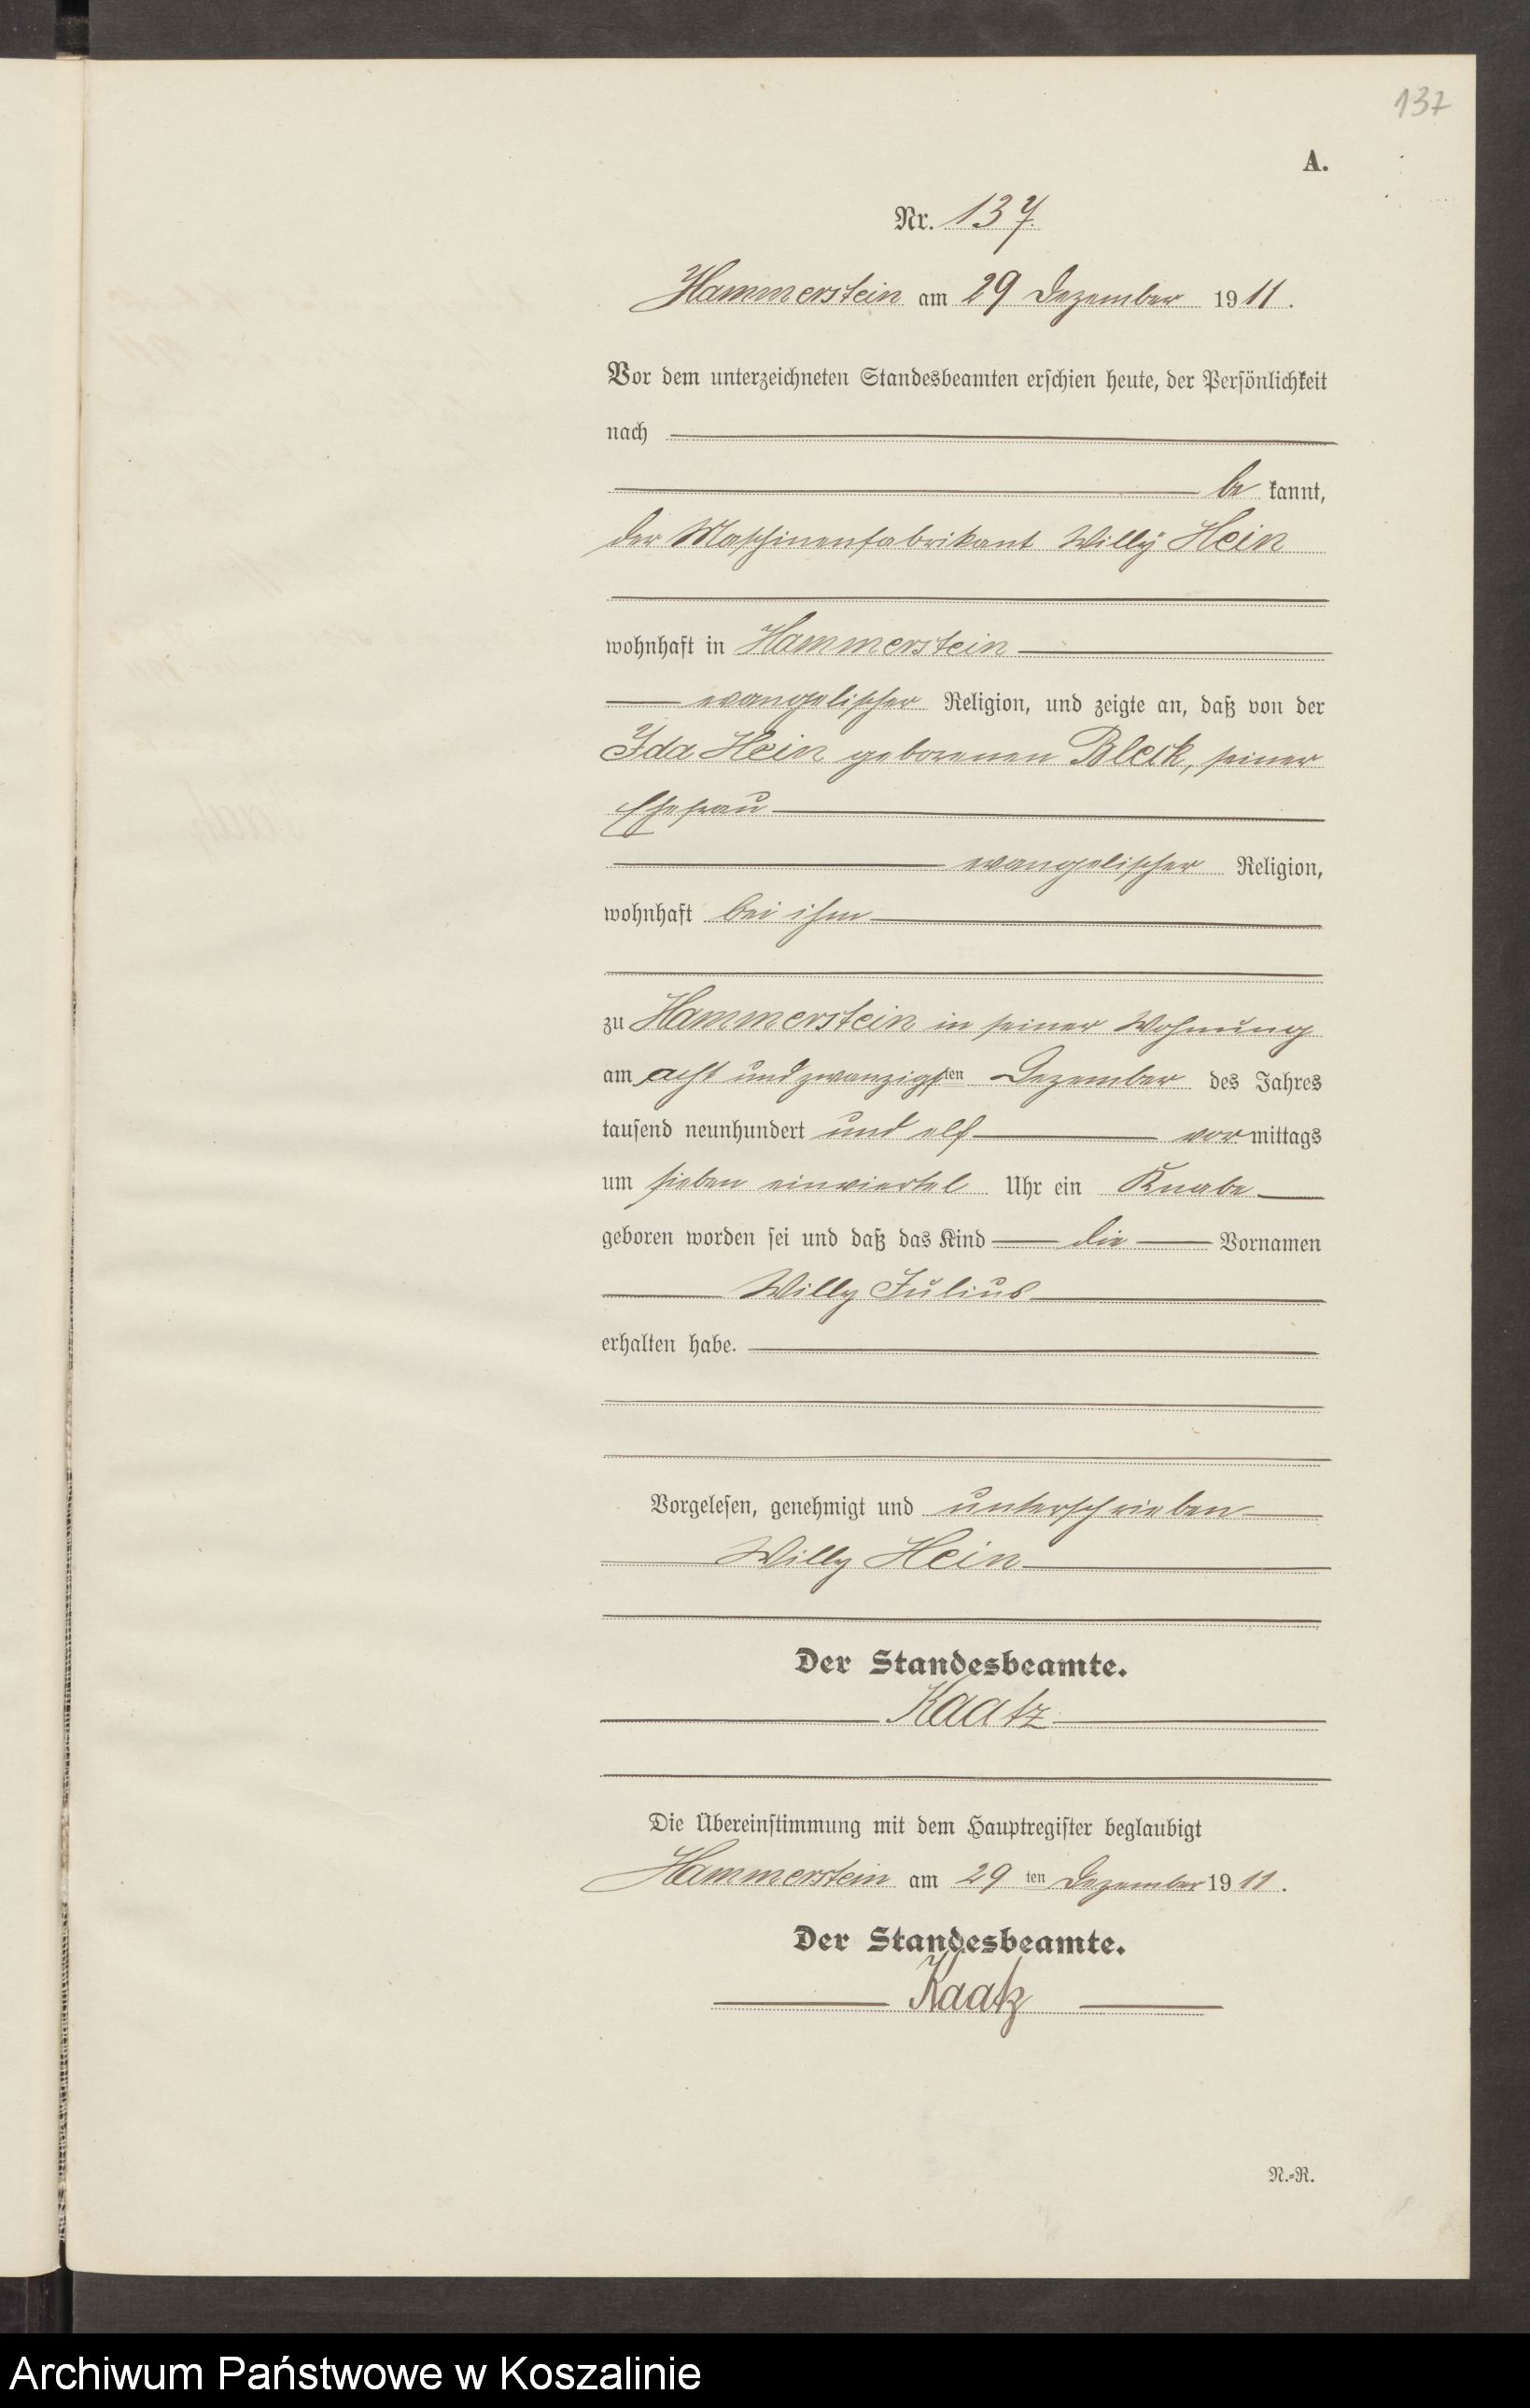 137
A.
Nr. 137.
Hammerstein am 29 Dezember 1911.
Vor dem unterzeichneten Standesbeamten erschien heute, der Persönlichkeit
nach
be kannt,
der Maschinenfabrikant Willÿ Hein
wohnhaft in Hammerstein
evangelischer Religion, und zeigte an, daß von der
Ida Hein geborenen Bleck, seiner
Ehefrau
evangelischer Religion,
wohnhaft bei ihm
zu Hammerstein in seiner Wohnung
am acht und zwanzigsten Dezember des Jahres
tausend neunhundert und elf vor mittags
um sieben einviertel Uhr ein Knabe
geboren worden sei und daß das Kind die Vornamen
Willy Julius
erhalten habe.
Vorgelesen, genehmigt und unterschrieben
Willy Hein
Der Standesbeamte.
Kaatz
Die Übereinstimmung mit dem Hauptregister beglaubigt
Hammerstein am 29 ten Dezember 1911.
Der Standesbeamte.
Kaatz
N.-R.
Archiwum Państwowe w Koszalinie